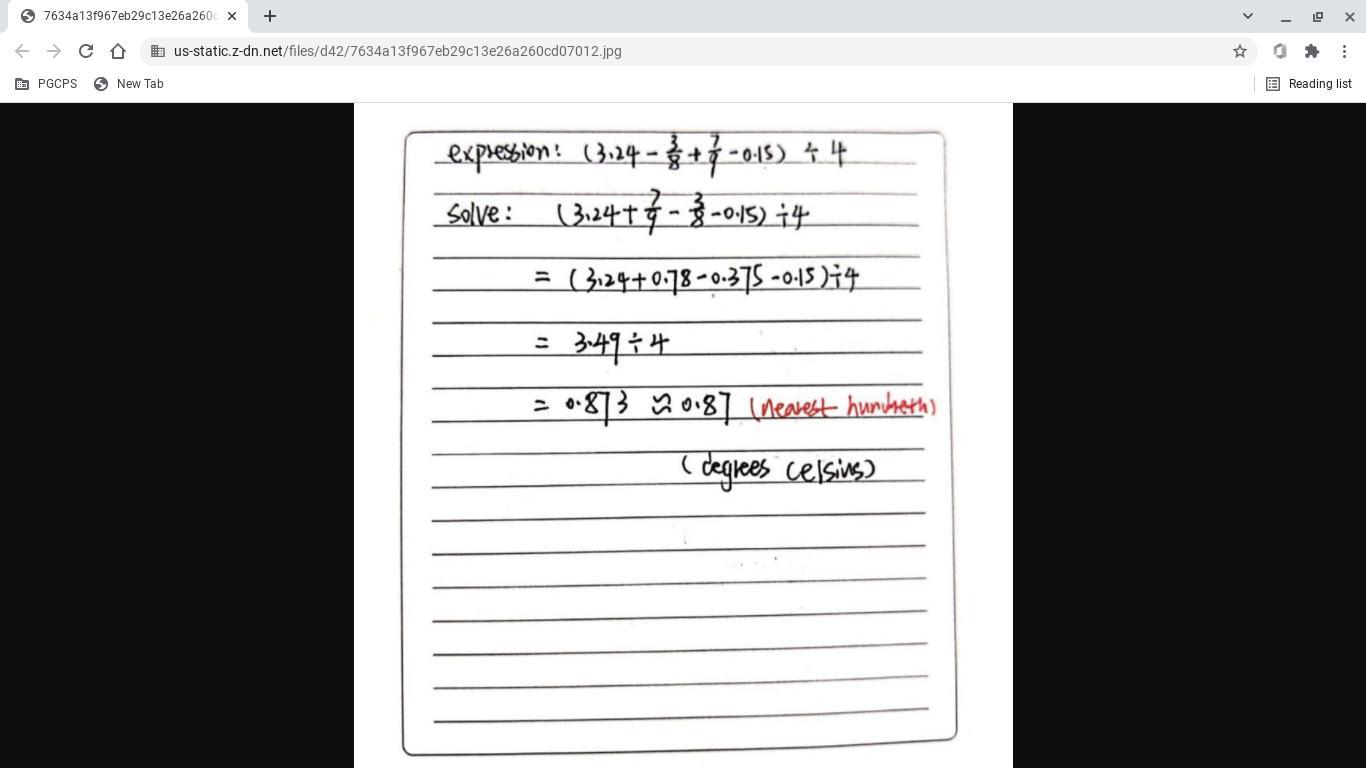 7634a13f967eb29c13e26a260c
us-static.z-dn.net/files/d42/7634a13f967eb29c13e26a260cd07012.jpg
PGCPS New Tab Reading list
expression: (3.24 - 3/8 + 7/9 - 0.15) ÷ 4
Solve: (3.24 + 7/9 - 3/8 - 0.15) ÷ 4
= (3.24 + 0.78 - 0.375 - 0.15) ÷ 4
= 3.49 ÷ 4
= 0.873 ≈ 0.87 (nearest hundreth)
(degrees Celsius)